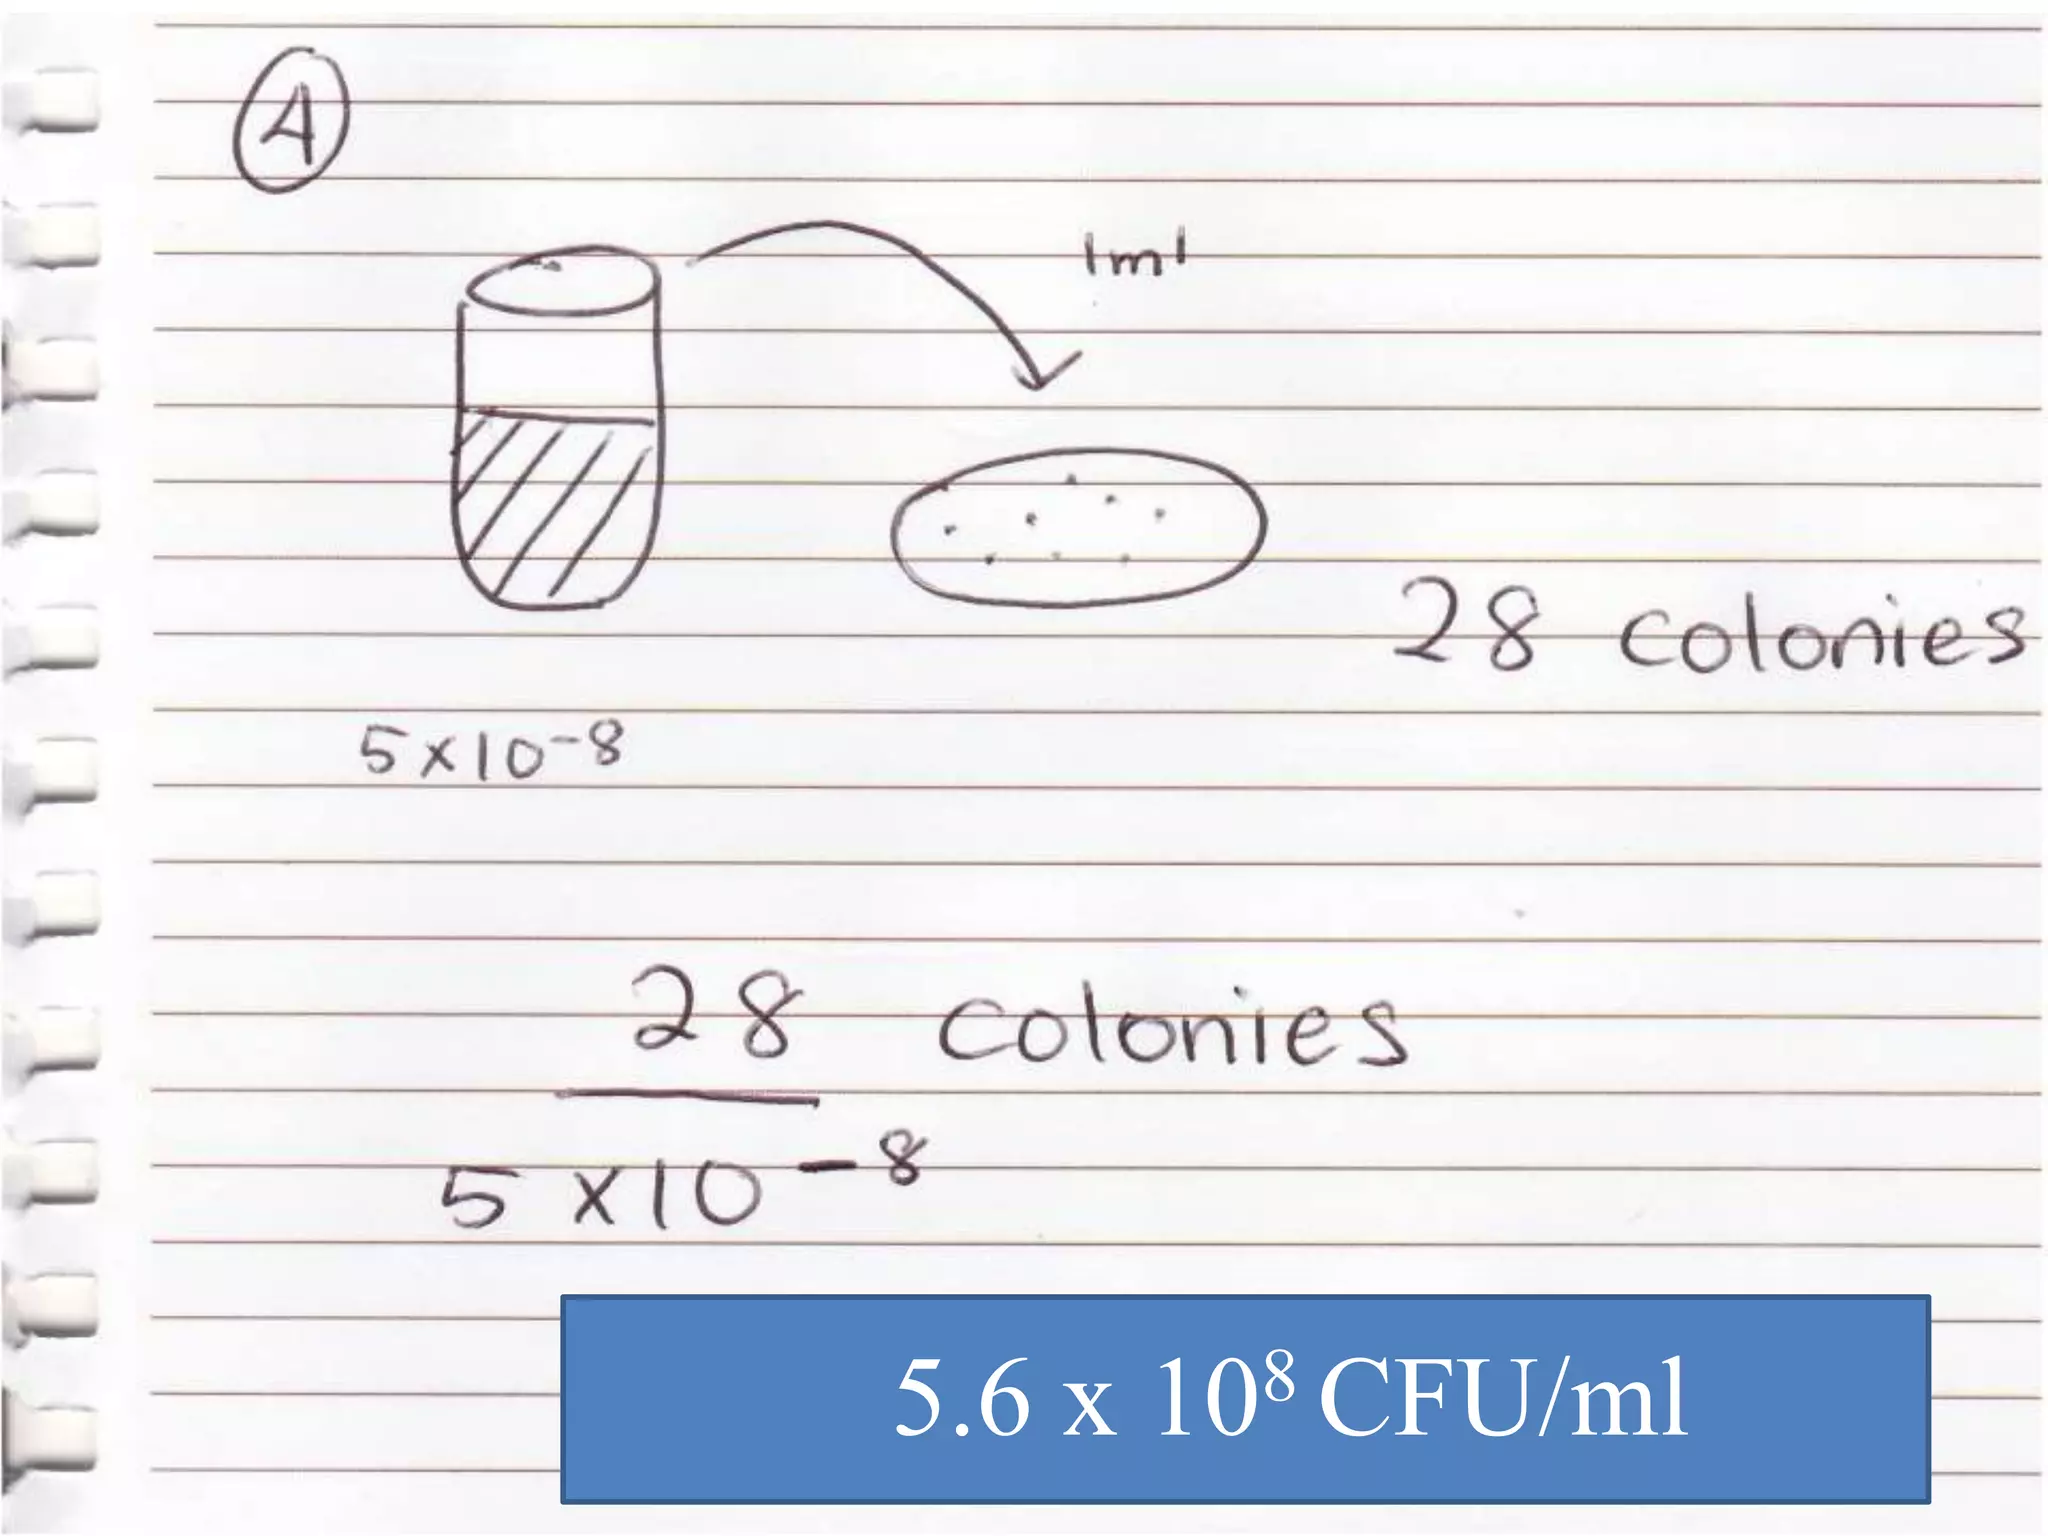 4
1ml
28 colonies
5x10⁻⁸
28 colonies
5 x10⁻⁸
5.6 x 10⁸ CFU/ml